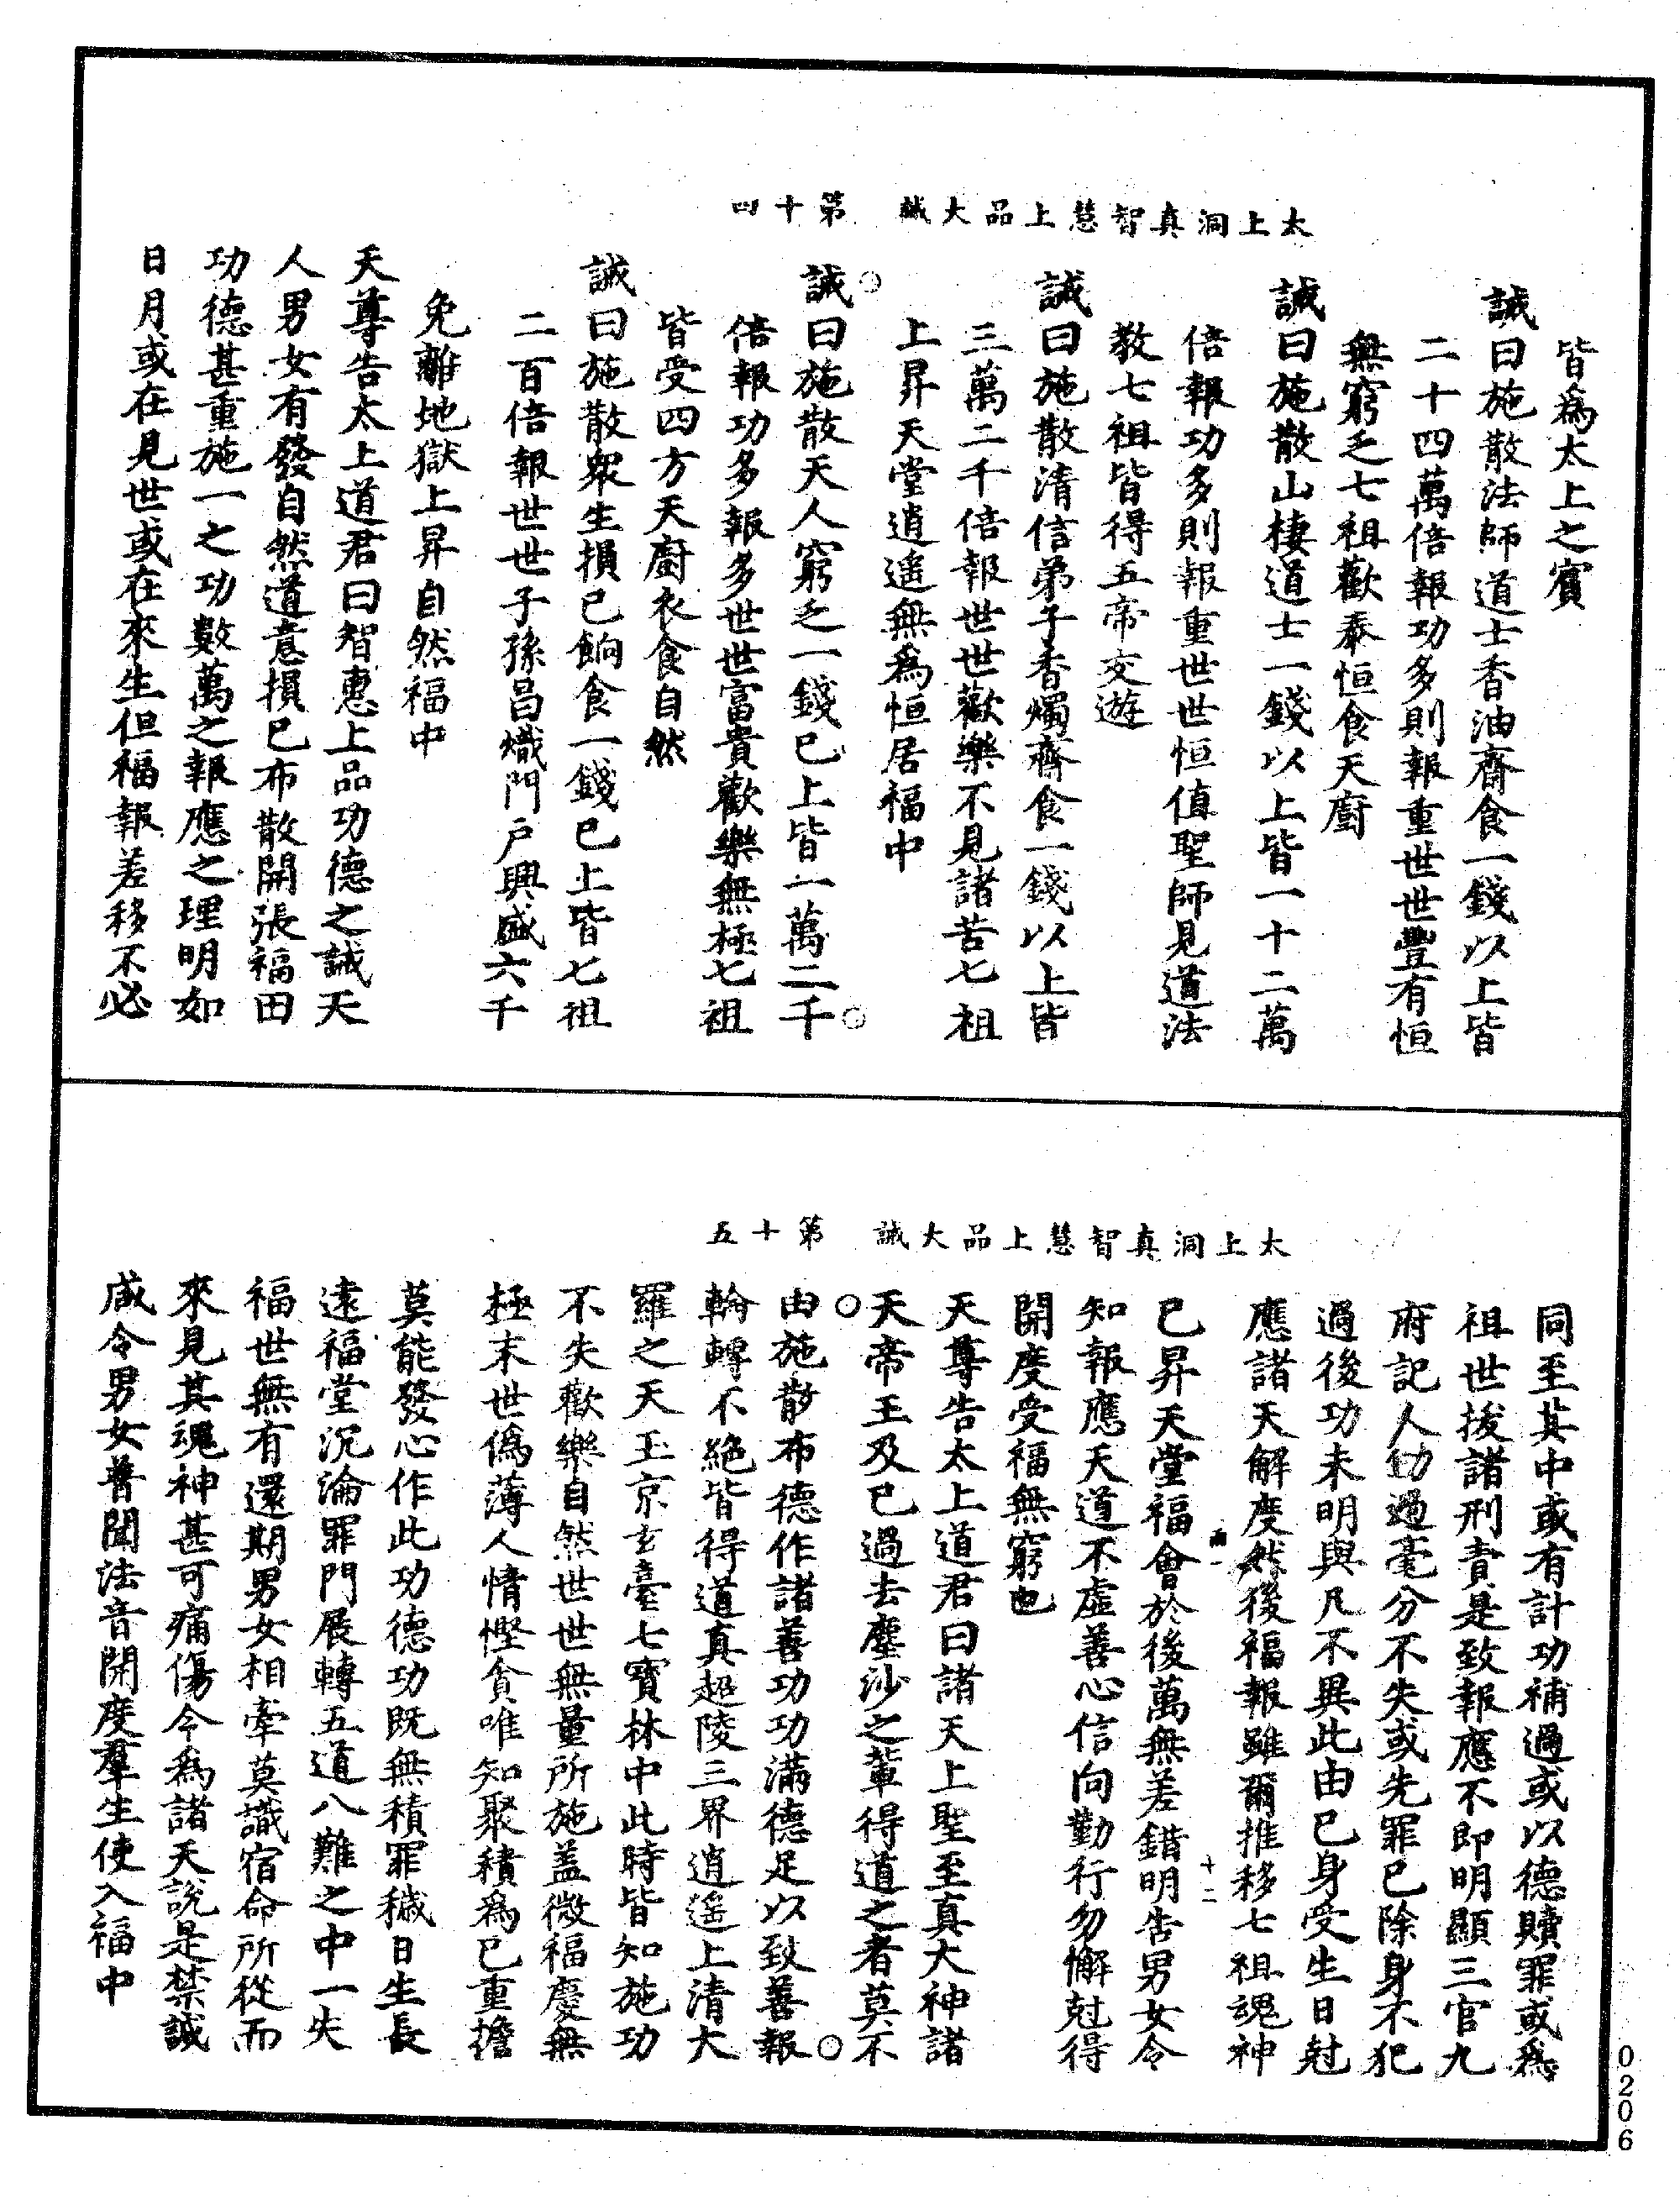 太上洞真智慧上品大誡　第十四
皆為太上之賓
誡曰施散法師道士香油齋食一錢以上皆
二十四萬倍報功多則報重世世豐有恒
無窮乏七祖歡泰恒食天廚
誡曰施散山棲道士一錢以上皆一十二萬
倍報功多則報重世世恒值聖師見道法
教七祖皆得五帝交遊
誡曰施散清信弟子香燭齋食一錢以上皆
三萬二千倍報世世歡樂不見諸苦七祖
上昇天堂逍遙無為恒居福中
誡曰施散天人窮乏一錢已上皆一萬二千
倍報功多報多世世富貴歡樂無極七祖
皆受四方天廚衣食自然
誡曰施散眾生損己餉食一錢已上皆七祖
二百倍報世世子孫昌熾門戶興盛六千
免離地獄上昇自然福中
天尊告太上道君曰智惠上品功德之誡天
人男女有發自然道意損己布散開張福田
功德甚重施一之功數萬之報應之理明如
日月或在見世或在來生但福報差移不必
太上洞真智慧上品大誡　第十五
同至其中或有計功補過或以德贖罪或為
祖世拔諸刑責是致報應不即明顯三官九
府記人功過毫分不失或先罪已除身不犯
過後功未明與凡不異此由已身受生日尅
應諸天解度然後福報雖爾推移七祖魂神
十二
已昇天堂福會於後萬無差錯明告男女令
知報應天道不虛善心信向勤行勿懈尅得
開度受福無窮也
天尊告太上道君曰諸天上聖至真大神諸
天帝王及已過去塵沙之輩得道之者莫不
由施散布德作諸善功功滿德足以致善報
輪轉不絕皆得道真超陵三界逍遙上清大
羅之天玉京玄臺七寶林中此時皆知施功
不失歡樂自然世世無量所施蓋微福慶無
極末世偽薄人情慳貪唯知聚積為已重擔
莫能發心作此功德功既無積罪穢日生長
遠福堂沉淪罪門展轉五道八難之中一失
福世無有還期男女相牽莫識宿命所從而
來見其魂神甚可痛傷今為諸天說是禁誡
咸令男女普聞法音開度羣生使入福中
0206